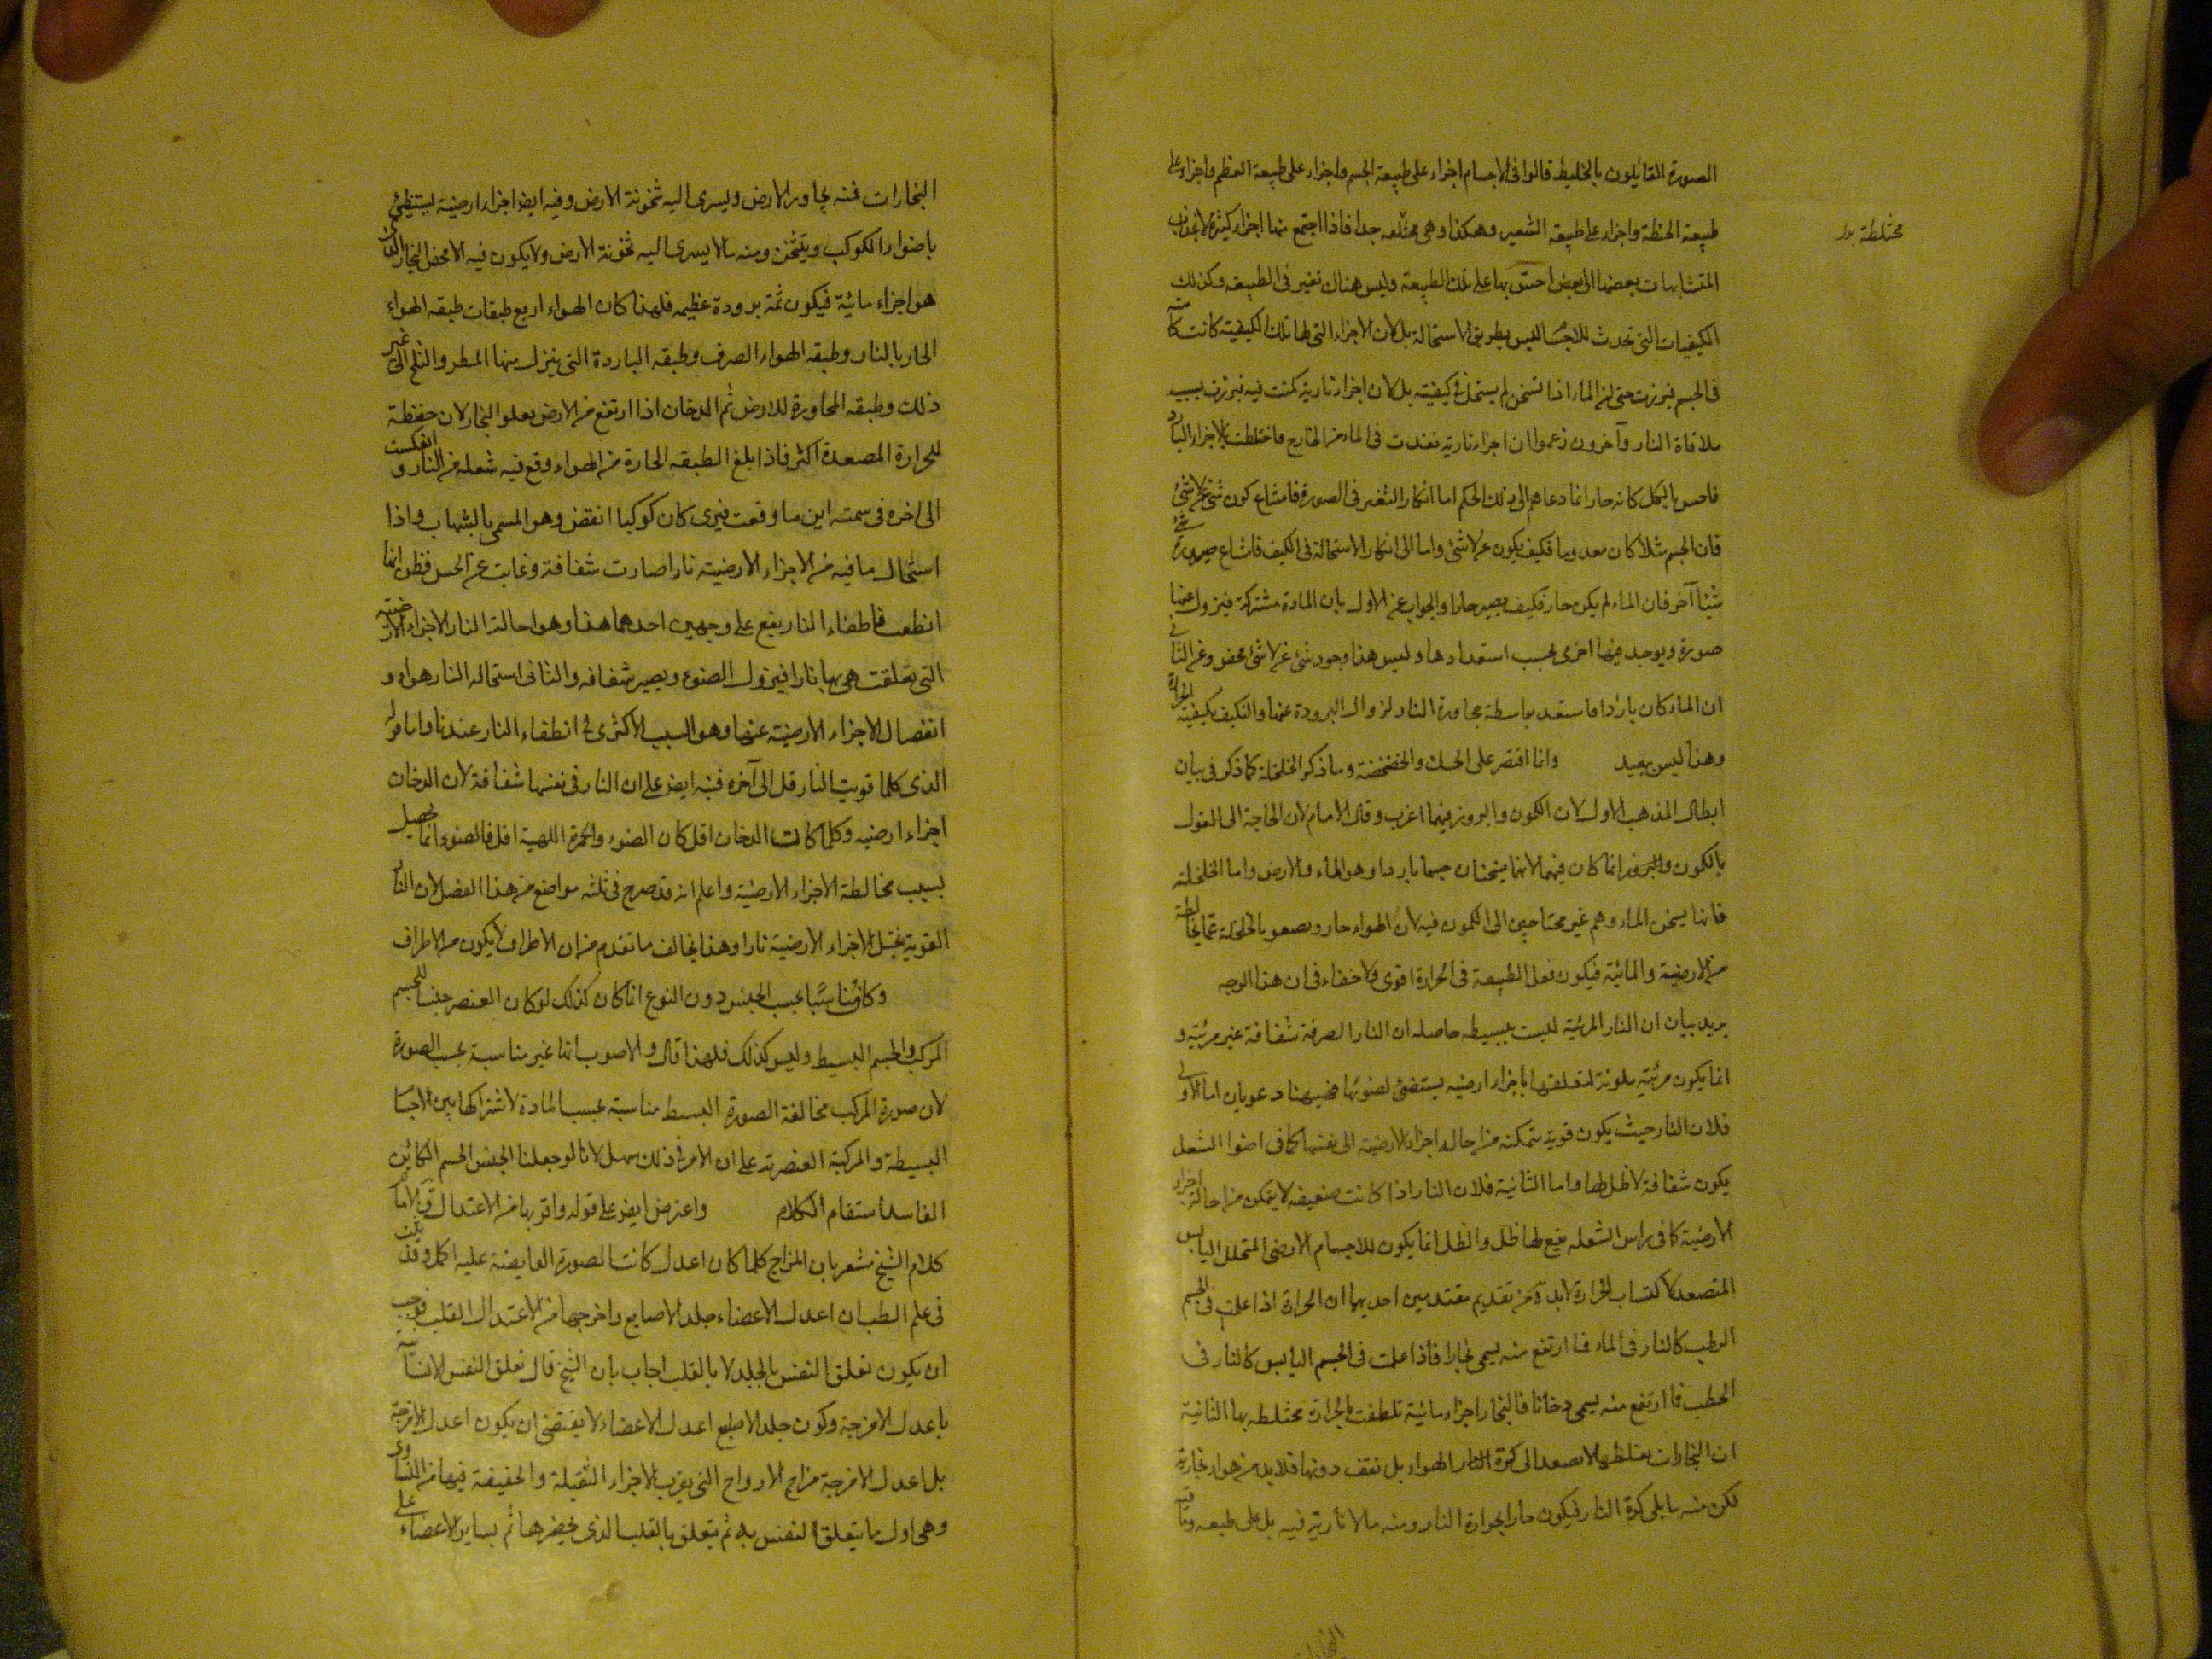 الصورة القائلون بالخليط قالوا فى الاجسام اجزاء على طبيعة الجسم واجزاء على طبيعة العظم واجزاء على
طبيعة الحنطة واجزاء على طبيعة الشعير وهكذا وهى مختلطة جدا فاذا اجتمع منها اجزاء كثيرة
مختلطة
المتشابهات بعضها الى بعض احس بها على تلك الطبيعة وليس هناك تغير فى الطبيعة وكذلك
الكيفيات التى تحدث للاجسام ليس بطريق الاستحالة بل لان الاجزاء التى لها تلك الكيفية كانت كامنة
فى الجسم فبرزت حتى ان الماء اذا تسخن لم يستحل فى كيفيته بل لان اجزاء نارية كمنت فيه فبرزت بسبب
ملاقاة النار وآخرون زعموا ان اجزاء نارية نفذت فى الماء من الخارج فاختلطت بالاجزاء الباردة
فاحس بالكل كانه حار انما دعاهم الى ذلك الحكم اما انكار التغير فى الصورة فامتناع كون شئ عن لا شئ
فان الجسم مثلا كان معدوما فكيف يكون عن لا شئ واما الى انكار الاستحالة فى الكيف فامتناع صيرورة شئ
شيئا آخر فان الماء لم يكن حارا فكيف يصير حارا والجواب عن الاول بان المادة مشتركة فيزول عنها
صورة ويوجد فيها اخرى بحسب استعدادها وليس هذا وجود شئ عن لا شئ محض وعن الثانى
ان الماء كان باردا فاستعد بواسطة مجاورة النار لزوال البرودة عنها والتكيف بكيفية الحرارة
وهذا ليس ببعيد وانما اقتصر على الحك والخضخضة وما ذكر الخلخلة كما ذكر فى بيان
ابطال المذهب الاول لان الكمون والبروز فيهما اغرب وقال الامام لان الحاجة الى القول
بالكمون والبروز انما كان فيهما لانهما يسخنان جسما باردا وهو الماء والارض واما الخلخلة
فانها يسخن الماء وهم غير محتاجين الى الكمون فيه لان الهواء حار ويصفو بالخلخلة عما يخالطه
من الارضية والمائية فيكون فعل الطبيعة فى الحرارة اقوى ولا خفاء فى ان هذا الوجه
يريد بيان ان النار المرئية ليست ببسيطه حاصله ان النار الصرفة شفافة غير مرئية و
انما يكون مرئية ملونة لتعلقها باجزاء ارضيه يستضئ لضوئها فههنا دعويان اما الاولى
فلان النار حيث يكون قوية متمكنة من احالة اجزاء الارضية الى نفسها كما فى اصول الشعل
يكون شفافة لا ظل لها واما الثانية فلان النار اذا كانت ضعيفه لا يتمكن من احالة اجزاء
الارضية كما فى راس الشعله يقع لها ظل والظل انما يكون للاجسام الارضى المتحلل اليابس
المتصعد لاكتساب الحرارة لا بد من تقديم مقدمتين احديهما ان الحرارة اذا عملت فى الجسم
الرطب كالنار فى الماء فما ارتفع منه يسمى بخارا فاذا عملت فى الجسم اليابس كالنار فى
الحطب فما ارتفع منه يسمى دخانا فالبخار اجزاء مائية تلطفت بالحرارة مختلطة بها الثانية
ان البخارات بغلظها لا يصعد الى كرة النار الهواء بل تقف دونها فلا بد من هواء بخارية
لكن منه ما يلى كرة النار فيكون حارا بحرارة النار ومنه ما لا نارية فيه بل على طبيعه
البخارات فمنه يجاور الارض ويسرى اليه سخونة الارض وفيه ايضا اجزاء ارضية يستضئ
باضواء الكوكب ويتسخن ومنه ما لا يسرى اليه سخونة الارض ولا يكون فيه الا محض البخار الذى
هو اجزاء مائية فيكون ثمة برودة عظيمه فلهذا كان الهواء اربع طبقات طبقه الهواء
الحار بالنار وطبقه الهواء الصرف وطبقه الباردة التى ينزل منها المطر والثلج الى غير
ذلك وطبقه المجاورة للارض ثم الدخان اذا ارتفع من الارض يعلو البخار لان حفظه
للحرارة المصعدة اكثر فاذا بلغ الطبقه الحارة من الهواء وقع فيه شعله من النار و
الى اخره فى سمته اين ما وقعت فيرى كان كوكبا انقض وهو المسمى بالشهاب واذا
استحال ما فيه من الاجزاء الارضية نارا صارت شفافة وغابت عن الحس فظن انها
انطفت فانطفاء النار يقع على وجهين احدهما هذا وهو احالة النار الاجزاء الارضية
التى تعلقت هى بها نارا فيزول الضوء ويصير شفافه والثانى استحاله النار هواء و
انفصال الاجزاء الارضية عنها وهو السبب الاكثرى فى انطفاء النار عندنا واما قوله
الذى كلما قويت النار قل الى آخره فنبه ايضا على ان النار فى نفسها شفافة لان الدخان
اجزاء ارضيه وكلما كانت الدخان اقل كان الضوء والحمرة اللهبية اقل فالضوء انما يحصل
بسبب مخالطة الاجزاء الارضية واعلم انه قد صرح فى ثلثه مواضع من هذا الفصل لان النار
القوية يقبل الاجزاء الارضية نارا وهذا يخالف ما تقدم من ان الاطراف لا يكون من الاطراف
وكانها مناسبا بحسب الجنس دون النوع انما كان كذلك لو كان العنصر جنسا للجسم
المركب والجسم البسيط وليس كذلك فلهذا قال والاصوب انما غير مناسبة بحسب الصورة
لان صورة المركب مخالفة الصورة البسيط مناسبة بحسب المادة لاشتراكها بين الاجسام
البسيطة والمركبة العنصرية على ان الامر فى ذلك سهل لانا لو جعلنا الجنس الجسم الكائن
الفاسد استقام الكلام واعترض ايضا على قوله واقربها من الاعتدال
كلام الشيخ مشعر بان المزاج كلما كان اعدل كانت الصورة الفايضة عليه اكمل وقد
فى علم الطب ان اعدل الاعضاء جلد الاصابع واخرجها من الاعتدال القلب فوجب
ان يكون تعلق النفس بالجلد لا بالقلب اجاب بان الشيخ قال تعلق النفس الانسانية
باعدل الامزجة وكون جلد الاصبع اعدل الاعضاء لا يقتضى ان يكون اعدل الامزجة
بل اعدل الامزجة مزاج الارواح التى يقرب الاجزاء الثقيلة والخفيفة فيها من التساوى
وهى اول ما يتعلق النفس به ثم يتعلق بالقلب الذى ثم بساير الاعضاء على